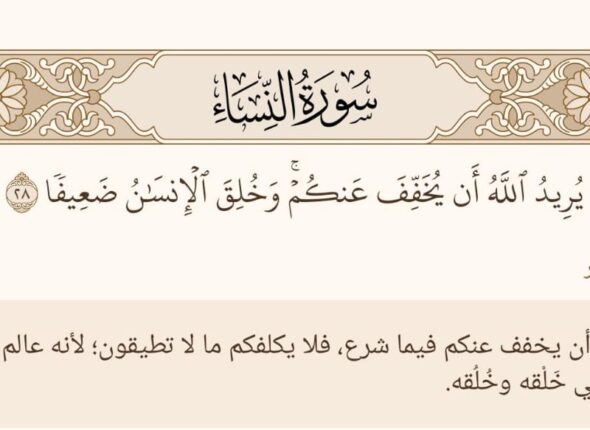 سُورَةُ النِّسَاءِ
يُرِيدُ ٱللَّهُ أَن يُخَفِّفَ عَنكُمۡۚ وَخُلِقَ ٱلۡإِنسَٰنُ ضَعِيفٗا ٢٨
أن يخفف عنكم فيما شرع، فلا يكلفكم ما لا تطيقون؛ لأنه عالم
خَلْقه وخُلُقه.